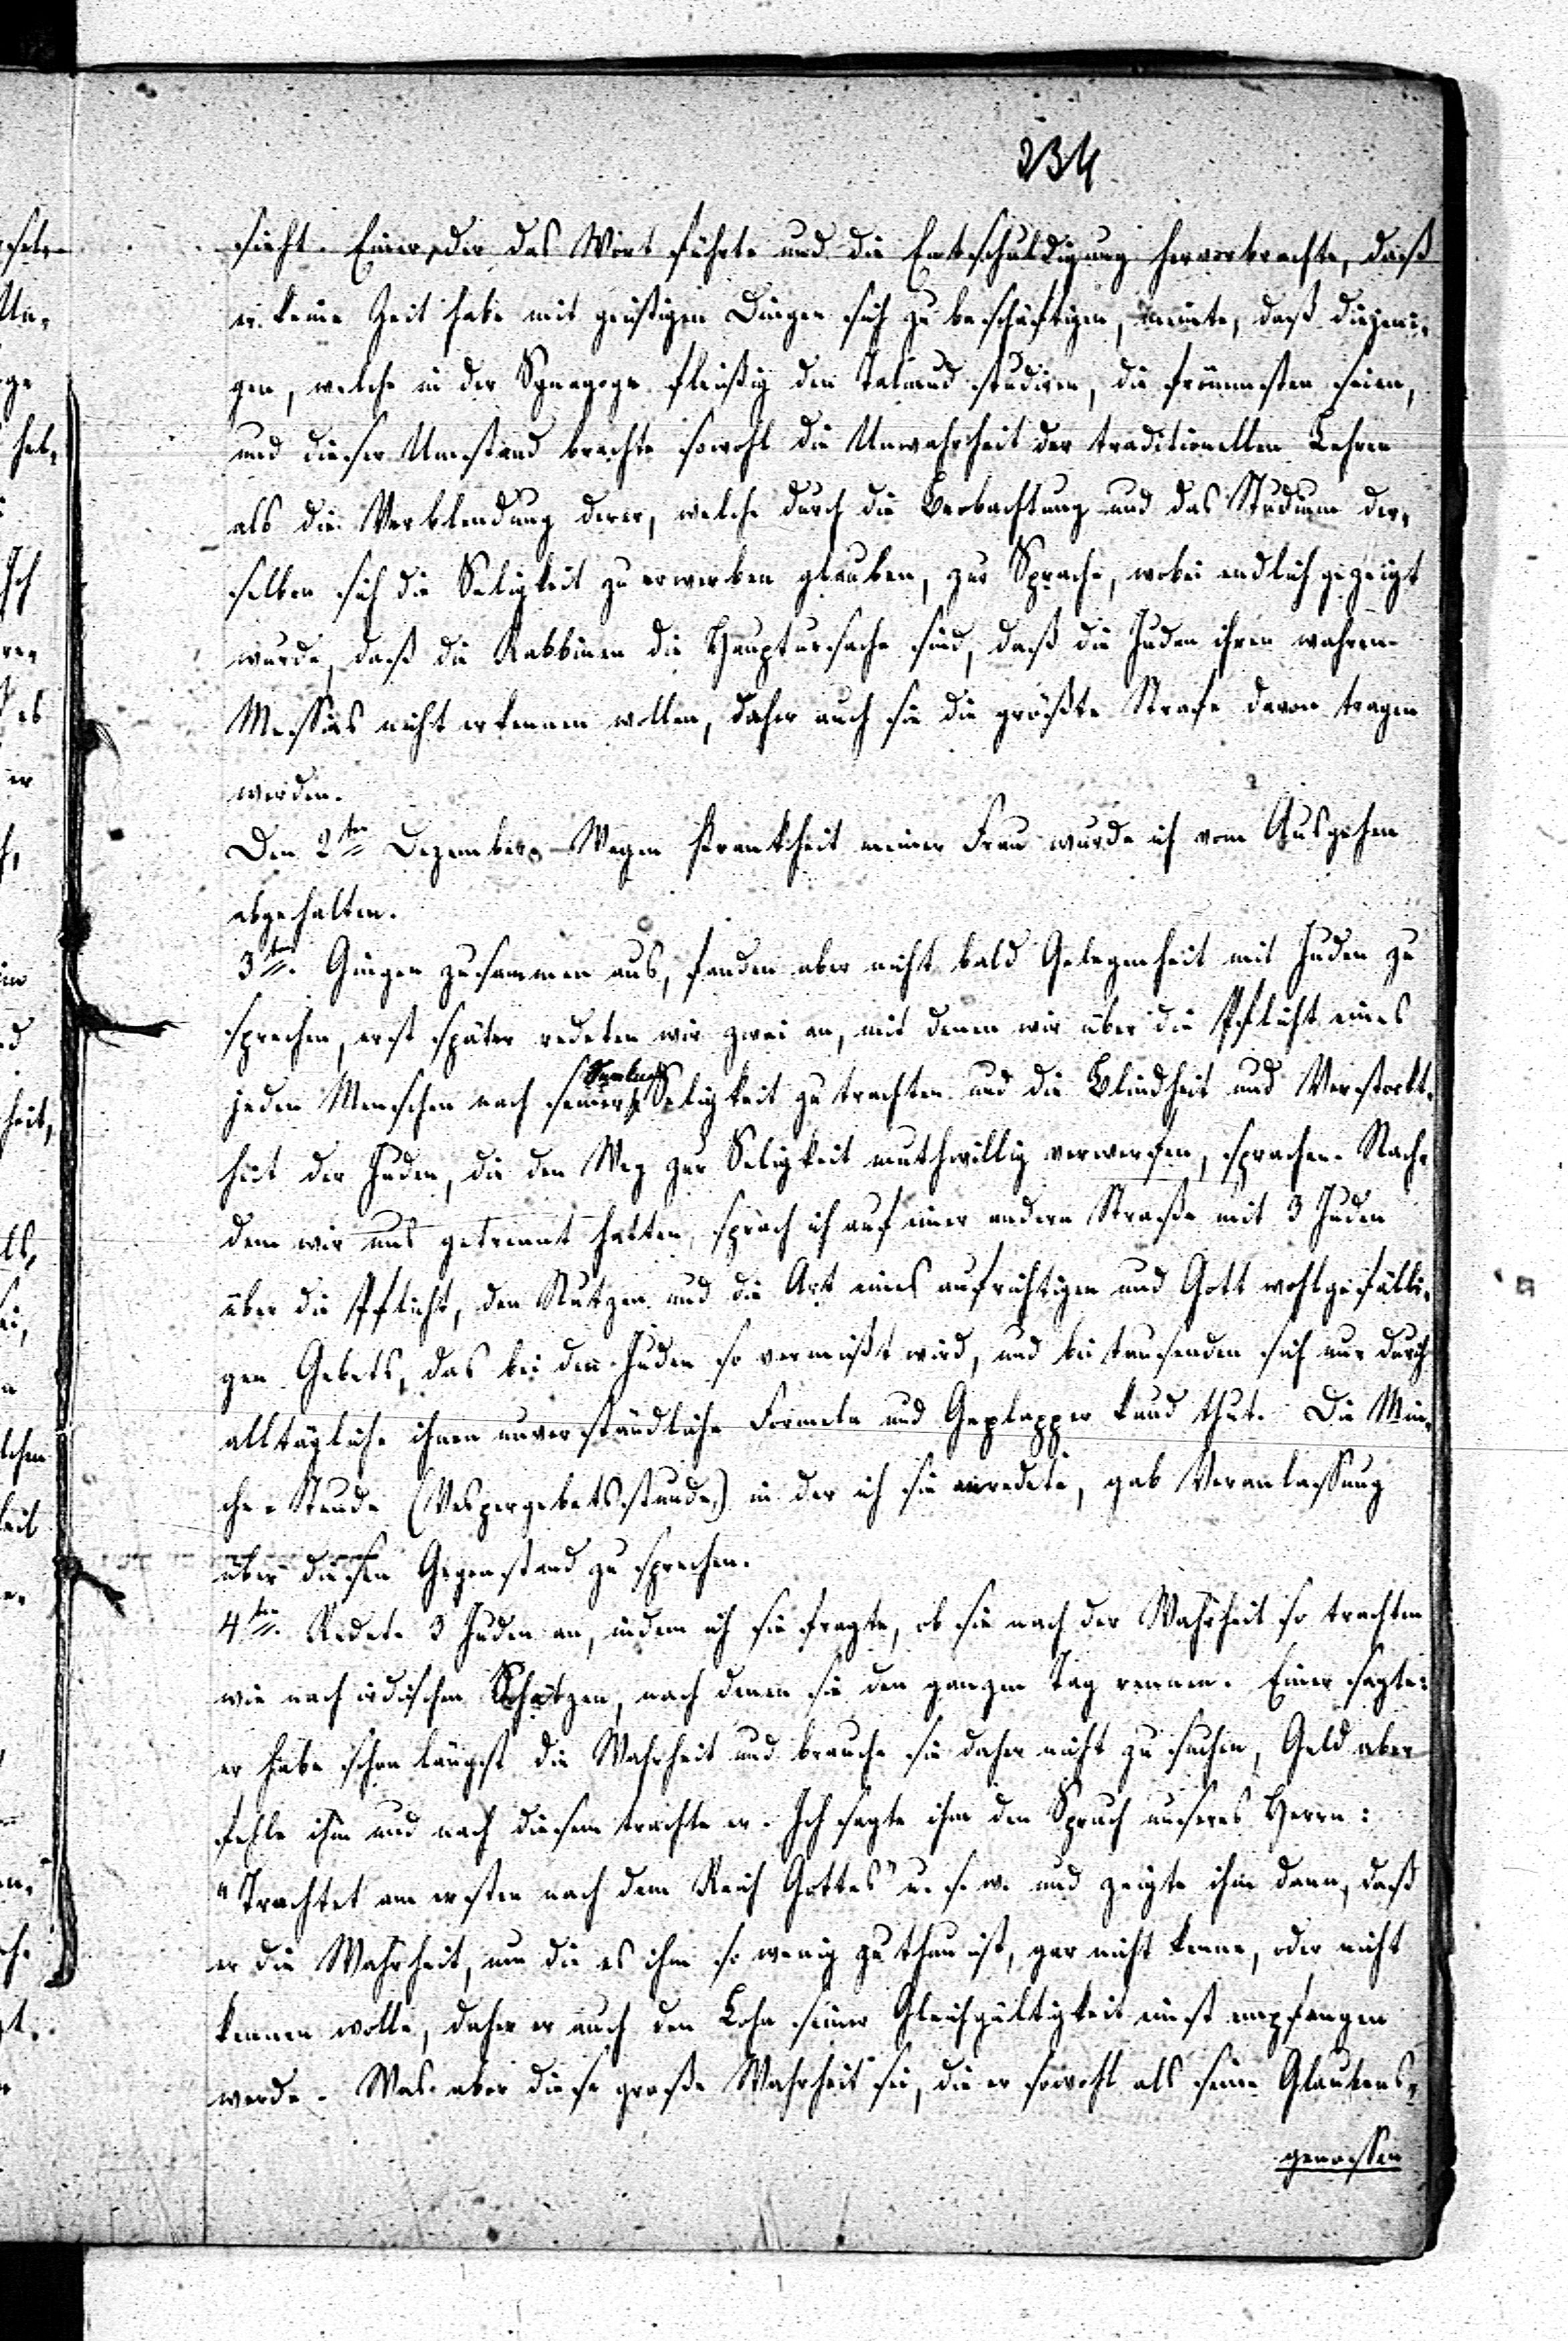 234
sicht. Einer, der das Wort führte und die Entschuldigung hervorbrachte, daß
er keine Zeit habe mit geistigen Dingen sich zu beschäftigen, meinte, daß diejeni-
gen, welche in der Synagoge fleißig den Talmud studiren, die frömmsten seien,
und dieser Umstand brachte sowohl die Unwahrheit der traditionellen Lehren
als die Verblendung derer, welche durch die Beobachtung und das Studium der-
selben sich die Seligkeit zu erwerben glauben, zur Sprache, wobei endlich gezeigt
wurde, daß die Rabbinen die Hauptursache sind, daß die Juden ihren wahren
Messias nicht erkennen wollen, daher auch sie die größte Strafe davon tragen
werden.
Den 2ten Dezember. Wegen Krankheit meiner Frau wurde ich vom Ausgehen
abgehalten.
3ten. Gingen zusammen aus, fanden aber nicht bald Gelegenheit mit Juden zu
sprechen, erst später redeten wir zwei an, mit denen wir über die Pflicht eines
jeden Menschen nach seiner Seelen Seligkeit zu trachten und die Blindheit und Verstockt-
heit der Juden, die den Weg zur Seligkeit muthwillig verwerfen, sprachen. Nach-
dem wir uns getrennt hatten, sprach ich auf einer andern Straße mit 3 Juden
über die Pflicht, den Nutzen und die Art eines aufrichtigen und Gott wohlgefälli-
gen Gebets, das bei den Juden so vermißt wird, und bei tausenden sich nur durch
alltägliche ihnen unverständliche Formeln und Geplapper kund thut. Die Min-
che-Stunde (Vespergebetsstunde,) in der ich sie anredete, gab Veranlassung
über diesen Gegenstand zu sprechen.
4ten. Redete 3 Juden an, indem ich sie fragte, ob sie nach der Wahrheit so trachten
wie nach irdischen Schätzen, nach denen sie den ganzen Tag rennen. Einer sagte:
er habe schon längst die Wahrheit und brauche sie daher nicht zu suchen, Geld aber
fehle ihm und nach diesem trachte er. Ich sagte ihm den Spruch unseres Herrn:
"Trachtet am ersten nach dem Reich Gottes" u. s. w. und zeigte ihm dann, daß
er die Wahrheit, um die es ihm so wenig zu thun ist, gar nicht kenne, oder nicht
kennen wolle, daher er auch den Lohn seiner Gleichgültigkeit einst empfangen
werde. Was aber diese große Wahrheit sei, die er sowohl als seine Glaubens-
genossen